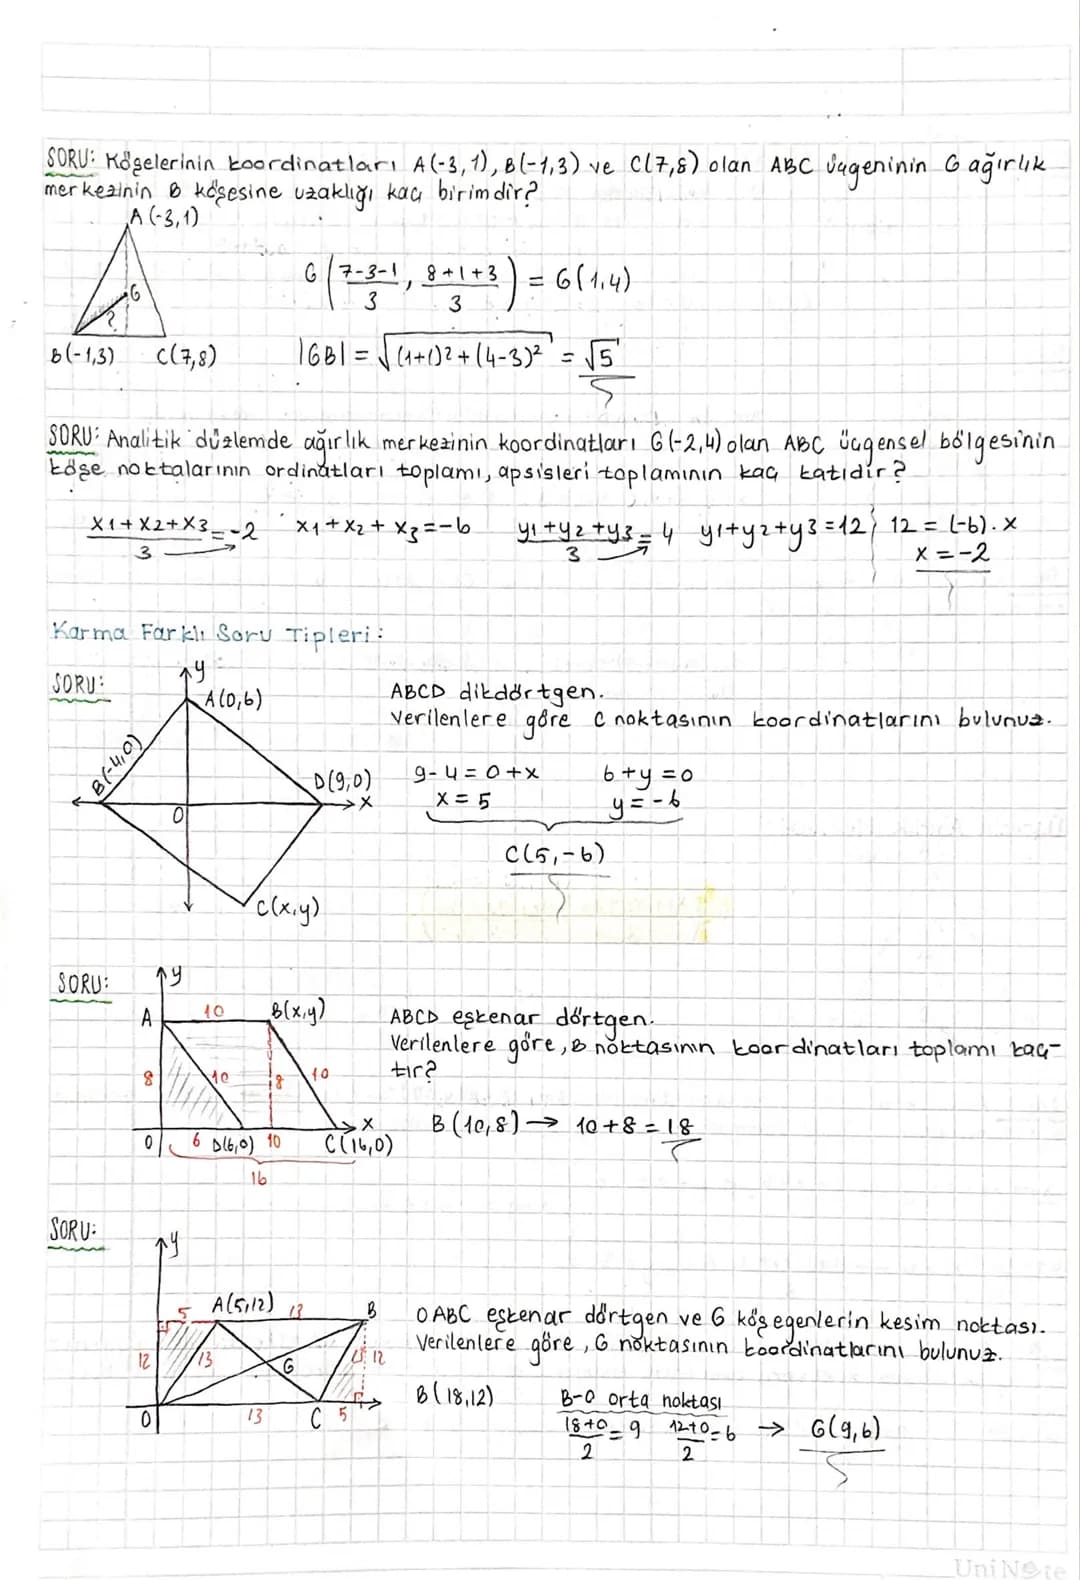 SORU: Köşelerinin koordinatları A(-3,1), B(-1,3) ve C(7,8) olan ABC üçgeninin G ağırlık
merkezinin B köşesine uzaklığı kaç birimdir?
A(-3,1)
G
?
B(-1,3) C(7,8)
G(7-3-1/3, 8+1+3/3) = G(1,4)
|GB| = √(1+1)2+(4-3)² = √5
SORU: Analitik düzlemde ağırlık merkezinin koordinatları G(-2,4) olan ABC üçgensel bölgesinin
köşe noktalarının ordinatları toplamı, apsisleri toplamının kaç katıdır?
x1+x2+x3/3 = -2 x1+x2+x3=-6 y1+y2+y3/3 = 4 y1+y2+y3=12 12 = (-6).x
x=-2
Karma Farklı Soru Tipleri:
SORU:
y
A(0,6)
B(-4,0)
D(9,0)
x
0
C(x,y)
ABCD dikdörtgen.
Verilenlere göre C noktasının koordinatlarını bulunuz.
9-4=0+x 6+y=0
x=5 y=-6
C(5,-6)
SORU:
y
A 10 B(x,y)
8 10 8 10
x
0 6 D(6,0) 10 C(16,0)
16
ABCD eşkenar dörtgen.
Verilenlere göre, B noktasının koordinatları toplamı kaç-
tır?
B(10,8) → 10+8=18
SORU:
y
5 A(5,12) 13 B
12 13 G 12
0 13 C 5
OABC eşkenar dörtgen ve G köşegenlerin kesim noktası.
Verilenlere göre, G noktasının koordinatlarını bulunuz.
B(18,12) B-0 orta noktası
18+0/2 = 9 12+0/2 = 6 → G(9,6)
UniNote